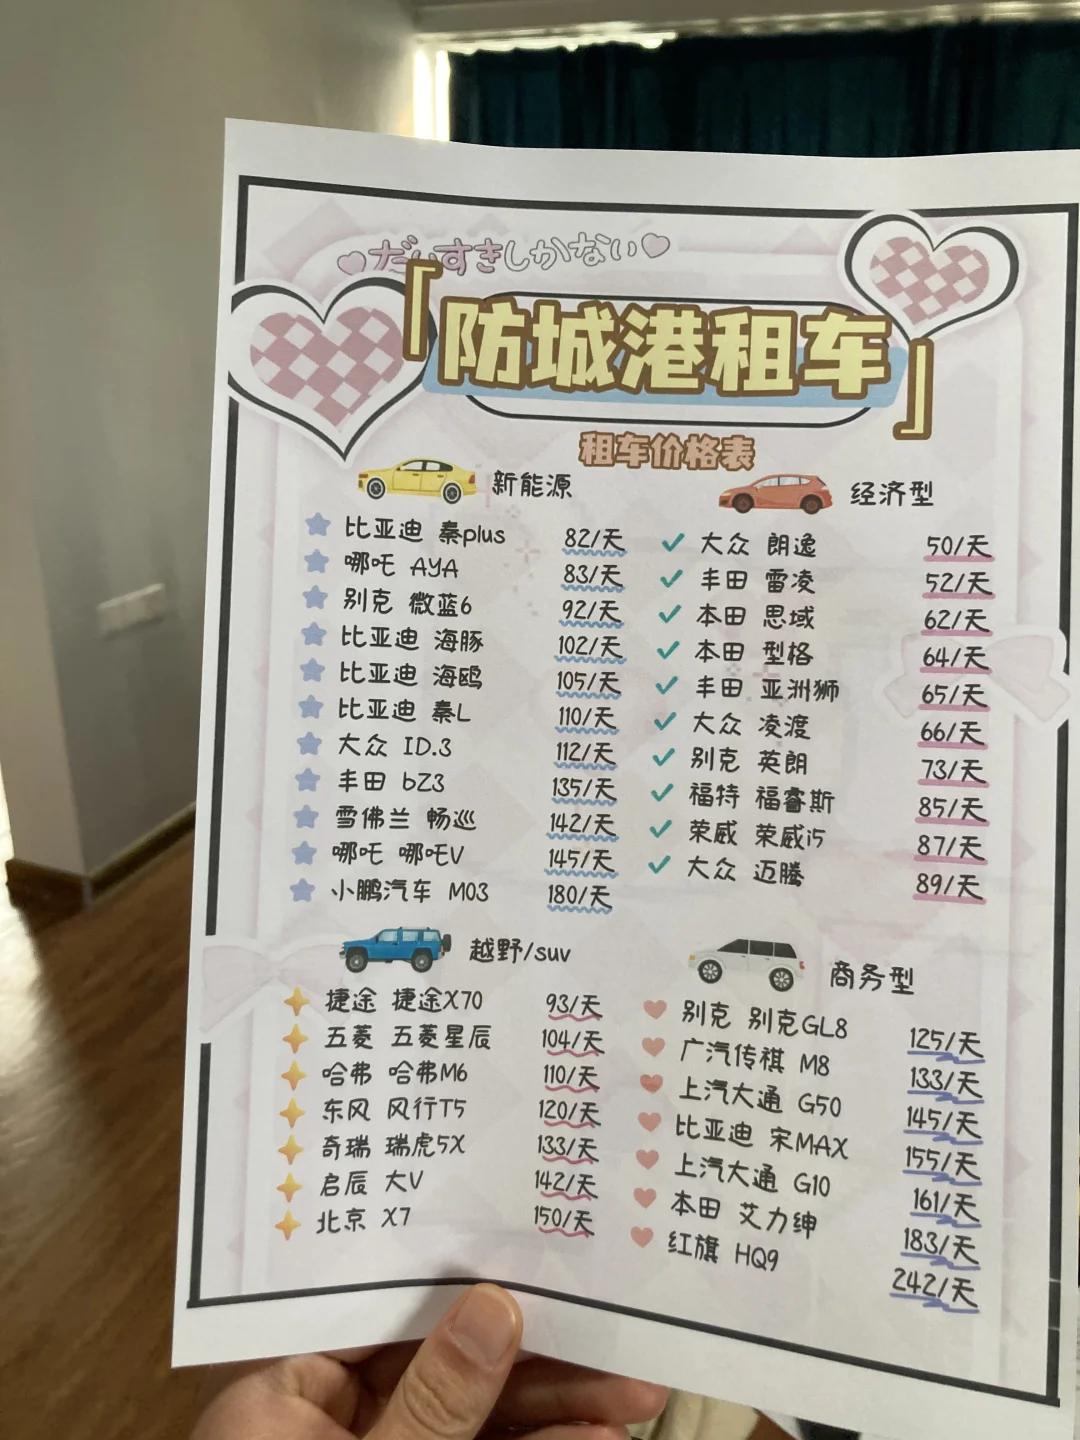 だいすきしかない
「防城港租车」
租车价格表
新能源
比亚迪 秦plus 82/天
哪吒 AYA 83/天
别克 微蓝6 92/天
比亚迪 海豚 102/天
比亚迪 海鸥 105/天
比亚迪 秦L 110/天
大众 ID.3 112/天
丰田 bZ3 135/天
雪佛兰 畅巡 142/天
哪吒 哪吒V 145/天
小鹏汽车 M03 180/天
经济型
大众 朗逸 50/天
丰田 雷凌 52/天
本田 思域 62/天
本田 型格 64/天
丰田 亚洲狮 65/天
大众 凌渡 66/天
别克 英朗 73/天
福特 福睿斯 85/天
荣威 荣威i5 87/天
大众 迈腾 89/天
越野/suv
捷途 捷途X70 93/天
五菱 五菱星辰 104/天
哈弗 哈弗M6 110/天
东风 风行T5 120/天
奇瑞 瑞虎5X 133/天
启辰 大V 142/天
北京 X7 150/天
商务型
别克 别克GL8 125/天
广汽传祺 M8 133/天
上汽大通 G50 145/天
比亚迪 宋MAX 155/天
上汽大通 G10 161/天
本田 艾力绅 183/天
红旗 HQ9 242/天